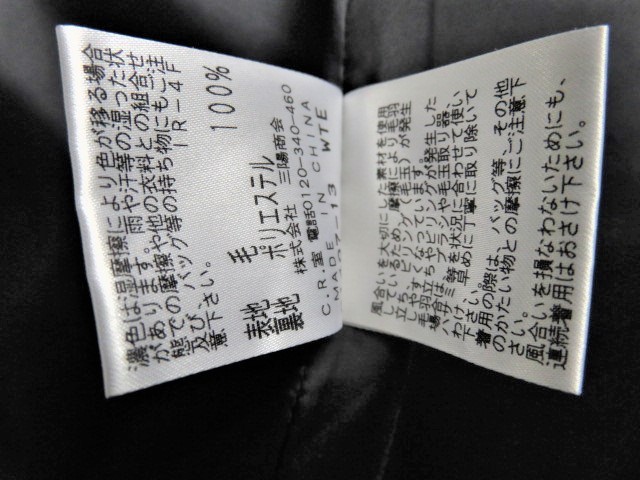 濃色は湿摩擦により色が移る場合
があります。雨や汗等の湿った状
態での摩擦や他の衣料との組合せ
及び、バッグ等の持ち物にもご注
意下さい。
IR-4F
表地 毛 100%
裏地 ポリエステル
株式会社 三陽商会
C.R室 電話0120-340-460
MADE IN CHINA
WTE
風合いを大切にした素材を使用
しているため、摩擦により毛羽
立ちや毛玉(ピリング)が発生
しやすくなっています。
毛羽立ちやピリングが発生した
場合は、ブラシや毛玉取り器、
ハサミ等を状況に合わせて使い
わけ、早めに丁寧に取り除いて
下さい。
着用の際は、バッグ等、その他
のかたい物との摩擦にご注意下
さい。
風合いを損なわないためにも、
連続着用はおさけ下さい。